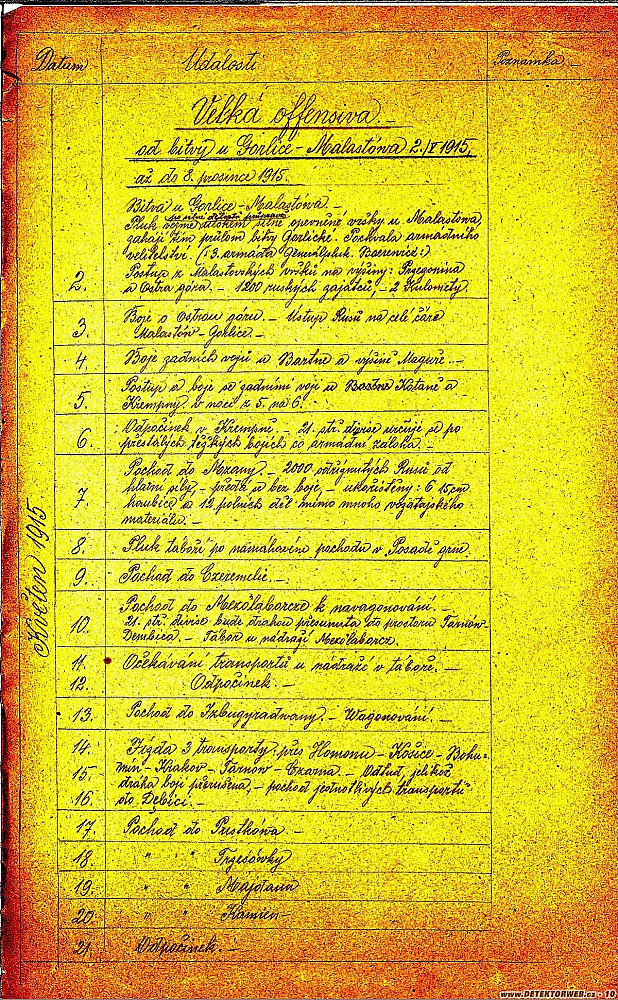 Datum Události Poznámka.–
Velká offensiva.–
od bitvy u Gorlice-Malastówa 2./V 1915,
až do 8. prosince 1915.
Květen 1915
Bitva u Gorlice-Malastówa.–
Pluk vezme po silné dělostř. přípravě útokem silně opevněné vršky u Malastówa,
zahájí tím průlom bitvy Gorlické. Pochvala armádního
velitelství. (: 3. armáda Generálpluk. Boroević :)
Postup z Malastovských vršků na výšiny: Przegonina
2. a Ostra góra. – 1200 ruských zajatců, – 2 kulomety.
Boje o Ostrou góru. – Ústup Rusů na celé čáře
3. Malastów-Gorlice.–
4. Boje zadních vojů u Bartne a výšině Maguře.–
Postup a boje se zadními voji u Kotaně a
5. Krempny v noci z 5. na 6.
Odpočinek v Krempně. – 21. stř. divise určuje se po
6. přestálých těžkých bojích co armádní záloha.–
Pochod do Mszany. – 2000 odříznutých Rusů od
hlavní síly, – předá se bez boje, – ukořistěny: 6 15cm
7. haubic a 12 polních děl mimo mnoho vozatajského
materiálu.–
8. Pluk táboří po namáhavém pochodu v Posadě grn.
9. Pochod do Czeremchi.–
Pochod do Mezölaborcze k navagonování.–
10. 21. stř. divise bude drahou přesunuta do prostoru Tarnow-
Dembica. – Tábor u nádraží Mezölaborcz.
11. Očekávání transportů u nádraží v táboře.–
12. Odpočinek.–
13. Pochod do Izbugyradwany. – Wagonování.–
14. Jízda 3 transporty přes Homonu-Košice-Bohu-
15. mín-Krakov-Tarnow-Czarna. – Odtud, jelikož
dráha boji přerušena, – pochod jednotlivých transportů
16. do Debici.–
17. Pochod do Pustkówa.–
18 " " Trzesówky
19. " " Majdanu
20 " " Kamien
21 Odpočinek.–
www.DETEKTORWEB.cz - 10